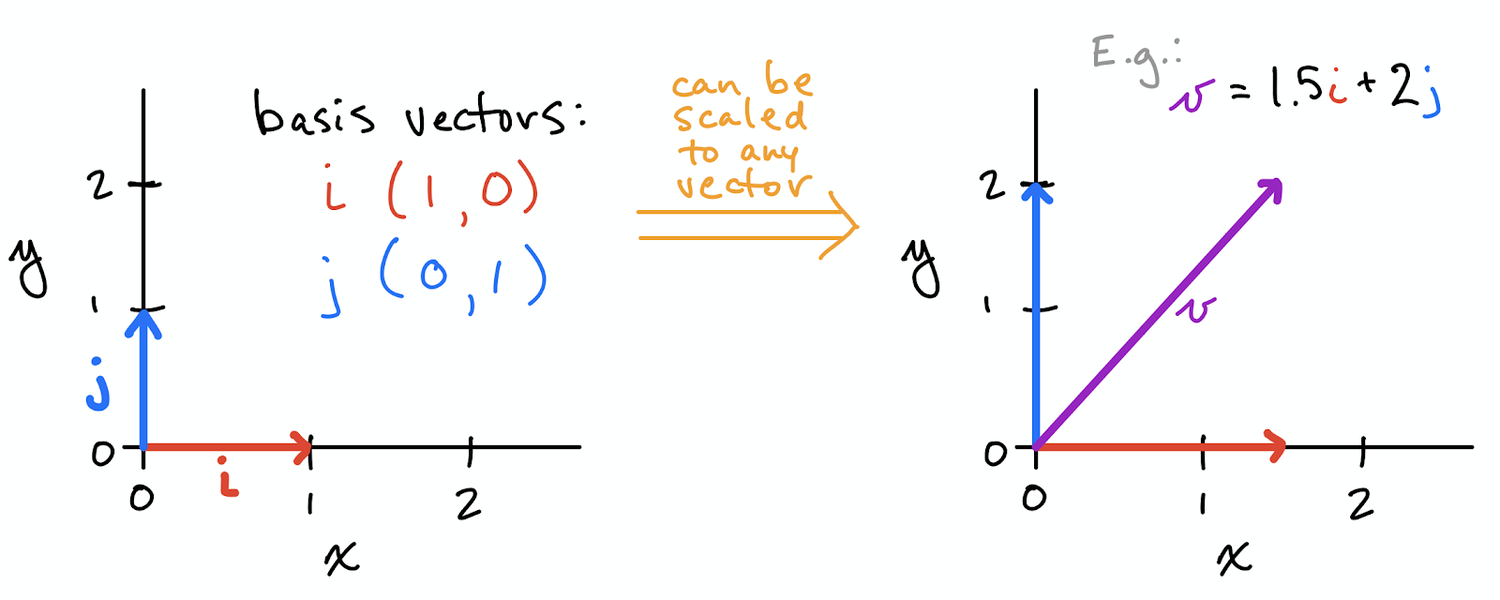 basis vectors:
i (1,0)
j (0,1)
2
y
1
j
0
i
0 1 2
x
can be
scaled
to any
vector
E.g.:
v = 1.5i + 2j
2
y
1
v
0
0 1 2
x